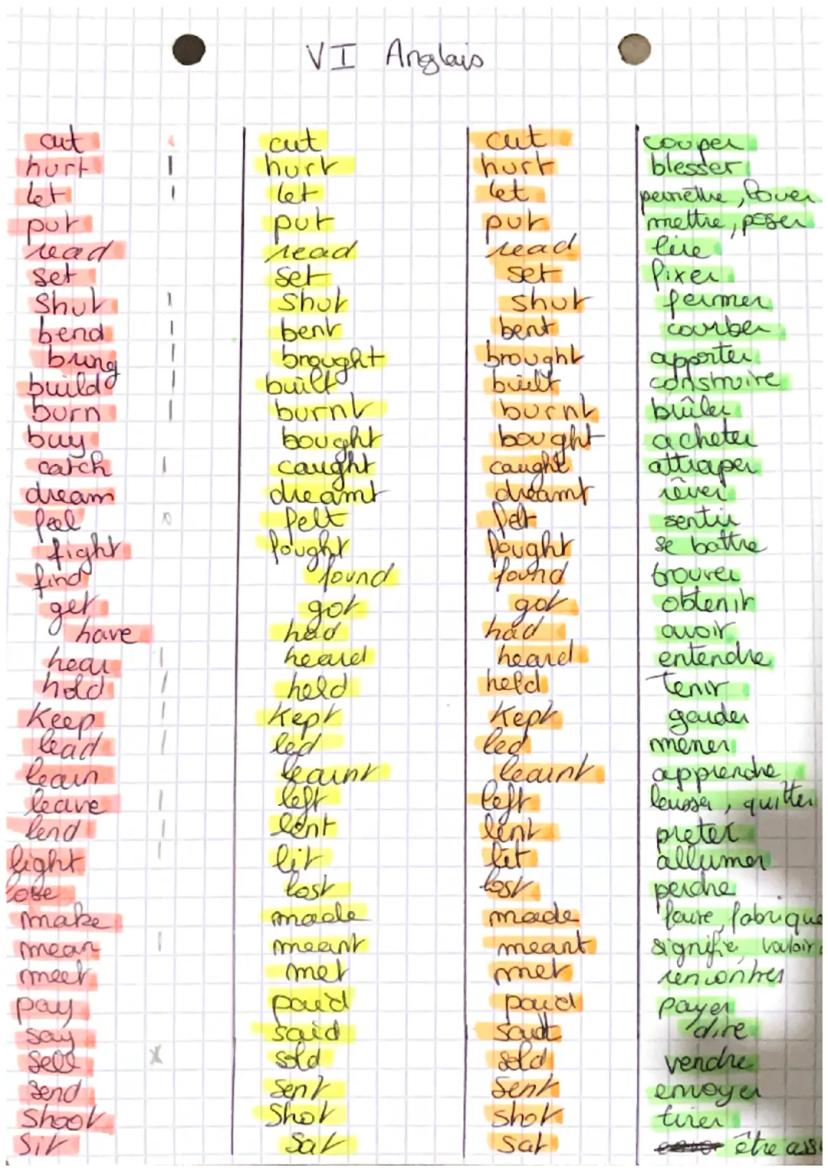 VI Anglais
cut cut cut couper
hurt hurt hurt blesser
let let let permettre, louer
put put put mettre, poser
read read read lire
set set set fixer
Shut Shut shut fermer
bend bent bent courber
bring brought brought apporter
build built built construire
burn burnt burnt brûler
buy bought bought acheter
catch caught caught attraper
dream dreamt dreamt rêver
feel felt felt sentir
fight fought fought se battre
find found found trouver
get got got obtenir
have had had avoir
hear heard heard entendre
hold held held Tenir
Keep Kept Kept garder
lead led led mener
learn learnt learnt apprendre
leave left left laisser, quitter
lend lent lent preter
light lit lit allumer
lose lost lost perdre
make made made faire, fabrique
mean meant meant signifie, vouloir
meet met met rencontrer
pay paid paid payer
say said said dire
sell sold sold vendre
send sent sent envoyer
shoot shot shot tirer
Sit Sat sat être ass